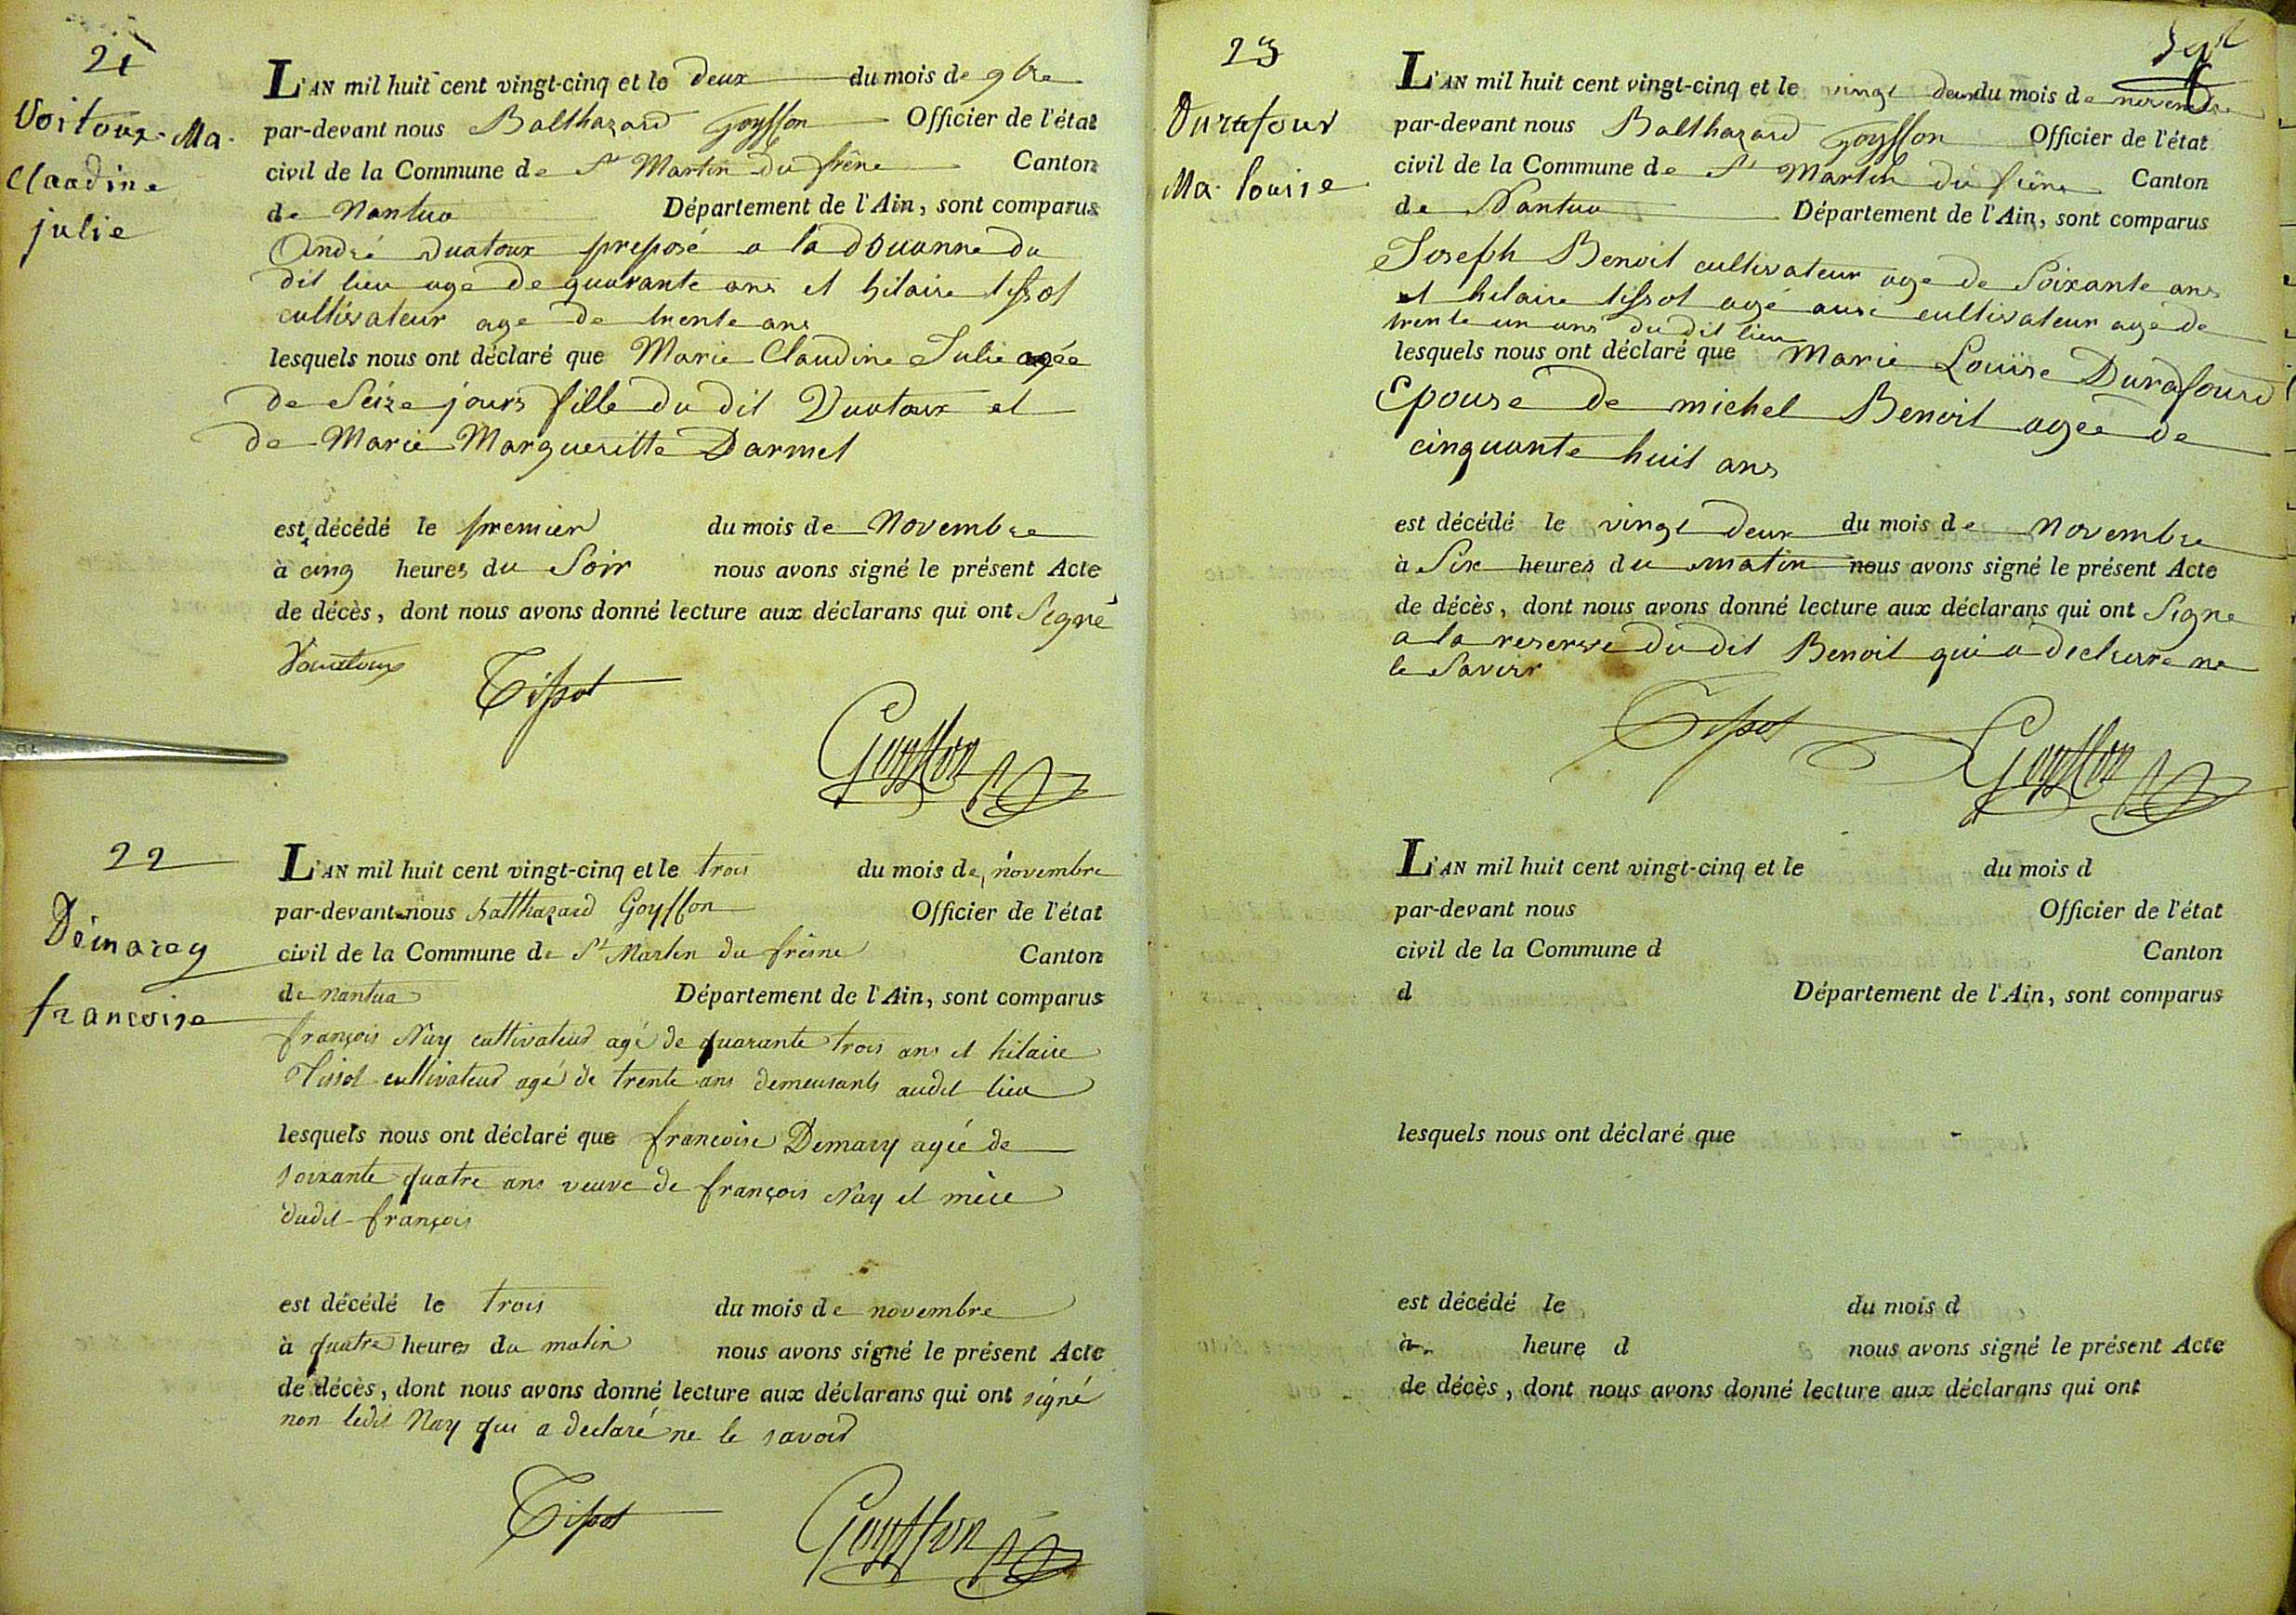 21
Voitoux. Ma.
Claudine
julie
L'AN mil huit cent vingt-cinq et le Deux du mois de 9bre
par-devant nous Balthazard Goyffon Officier de l'état
civil de la Commune de St Martin Du frêne Canton
de Nantua Département de l'Ain, sont comparus
André Vuatoux preposé a la Douanne du
dit lieu age de quarante ans et hilaire tissot
cultivateur age de trente ans
lesquels nous ont déclaré que Marie Claudine Julie agée
de Seize jours fille du dit Vuatoux et
de Marie Margueritte Darmet
est décédé le premier du mois de Novembre
à cinq heures du Soir nous avons signé le présent Acte
de décès, dont nous avons donné lecture aux déclarans qui ont Signé
Vuatoux Tissot
Goyffon
22
Démarey
francoise
L'AN mil huit cent vingt-cinq et le trois du mois de novembre
par-devant nous balthazard Goyffon Officier de l'état
civil de la Commune de St Martin du frêsne Canton
de nantua Département de l'Ain, sont comparus
françois Nay cultivateur agé de quarante trois ans et hilaire
Tissot cultivateur agé de trente ans demeurants audit lieu
lesquels nous ont déclaré que francoise Demary agée de
soixante quatre ans veuve de françois Nay et mère
dudit françois
est décédé le trois du mois de novembre
à quatre heures du matin nous avons signé le présent Acte
de décès, dont nous avons donné lecture aux déclarans qui ont signé
non ledit Nay qui a declaré ne le savoir
Tissot Goyffon
23
Durafour
Ma. louise
L'AN mil huit cent vingt-cinq et le vingt deux du mois de novembre
par-devant nous Balthazard Goyffon Officier de l'état
civil de la Commune de St Martin du frêne Canton
de Nantua Département de l'Ain, sont comparus
Joseph Benoit cultivateur age de Soixante ans
et hilaire tissot agé aussi cultivateur age de
trente un ans du dit lieu
lesquels nous ont déclaré que Marie Louïse Durafourd
Epouse de michel Benoit agée de
cinquante huit ans
est décédé le vingt deux du mois de Novembre
à Six heures du matin nous avons signé le présent Acte
de décès, dont nous avons donné lecture aux déclarans qui ont Signe
a la reserve du dit Benoit qui a declare ne
le Savoir
Tissot Goyffon
L'AN mil huit cent vingt-cinq et le du mois d
par-devant nous Officier de l'état
civil de la Commune d Canton
d Département de l'Ain, sont comparus
lesquels nous ont déclaré que
est décédé le du mois d
à heure d nous avons signé le présent Acte
de décès, dont nous avons donné lecture aux déclarans qui ont